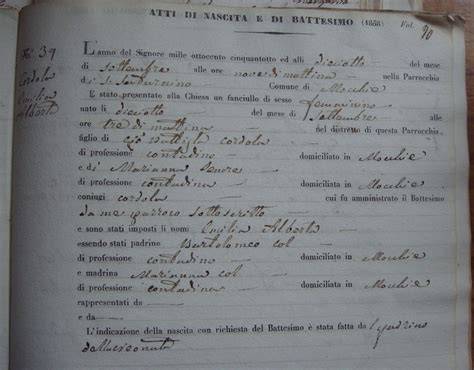 ATTI DI NASCITA E DI BATTESIMO (1858) Fol. 20
N.° 39
Cordola
Emilia
Alberta
L'anno del Signore mille ottocento cinquantotto ed alli dieciotto
di settembre alle ore nove di mattina nella Parrocchia
di Comune di Mochie
È stato presentato alla Chiesa un fanciullo di sesso femminino
nato li dieciotto del mese di settembre
ore tre di mattina nel distretto di questa Parrocchia
figlio di Battista cordola
di professione contadino domiciliato in Mochie
e di Marianna
di professione contadina domiciliata in Mochie
coniugi cordola cui fu amministrato il Battesimo
da me parroco sottoscritto
e sono stati imposti li nomi Emilia Alberta
essendo stati padrino Bartolomeo col
di professione contadino domiciliato in Mochie
e madrina Marianna col
di professione contadina domiciliata in Mochie
rappresentati da
e da
L'indicazione della nascita con richiesta del Battesimo è stata fatta da